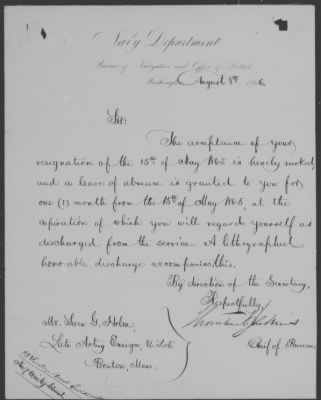 Navy Department
Bureau of Navigation and Office of Detail
Washington August 8th 1866.
Sir:
The acceptance of your
resignation of the 15th of May 1865 is hereby revoked,
and a leave of absence is granted to you for
one (1) month from the 15th of May 1865, at the
expiration of which you will regard yourself as
discharged from the service. A lithographed
honorable discharge accompanies this.
By direction of the Secretary,
Respectfully,
Mr. G. Holm,
Late Acting Ensign, U.S.N.
Chief of Bureau
Boston, Mass.